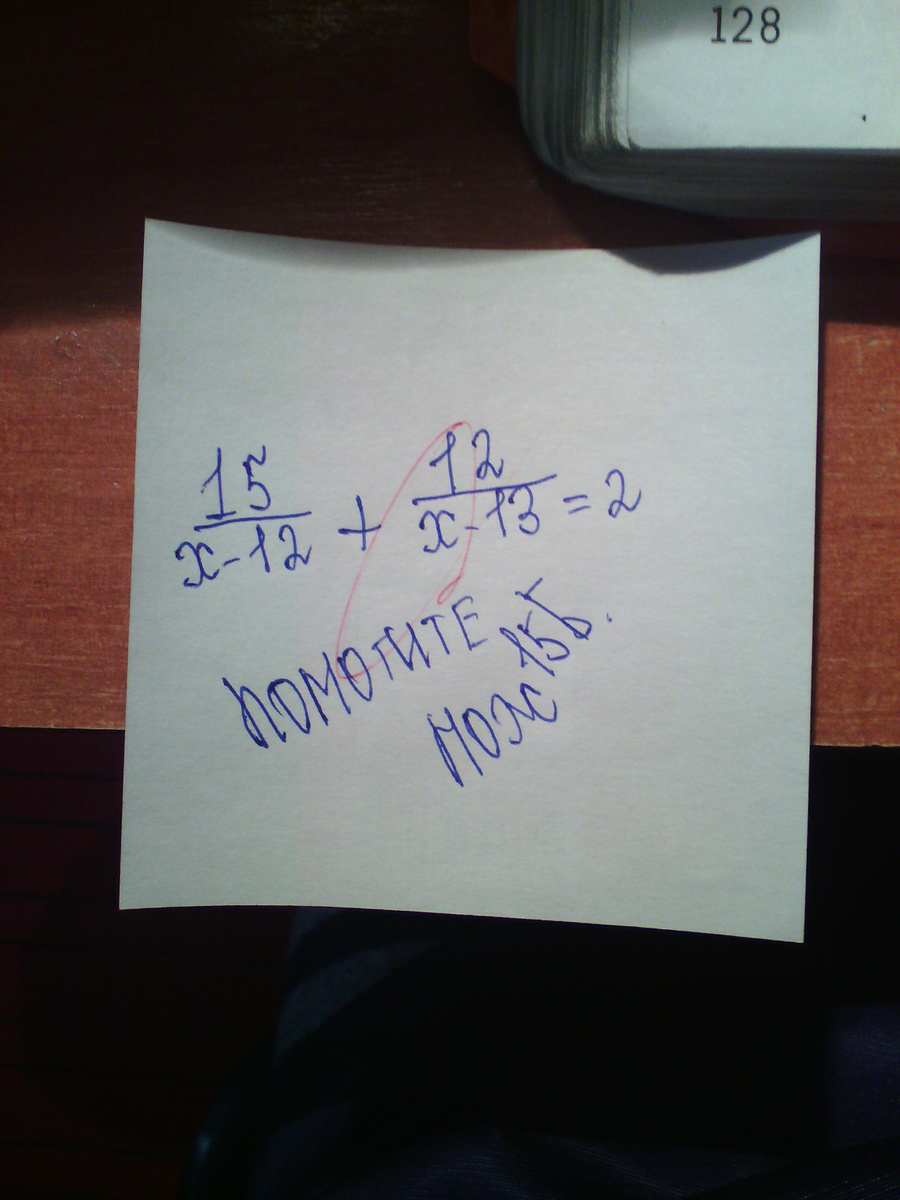 128
15/(x-12) + 12/(x-13) = 2
ПОМОГИТЕ
ПОЖ 15Б.